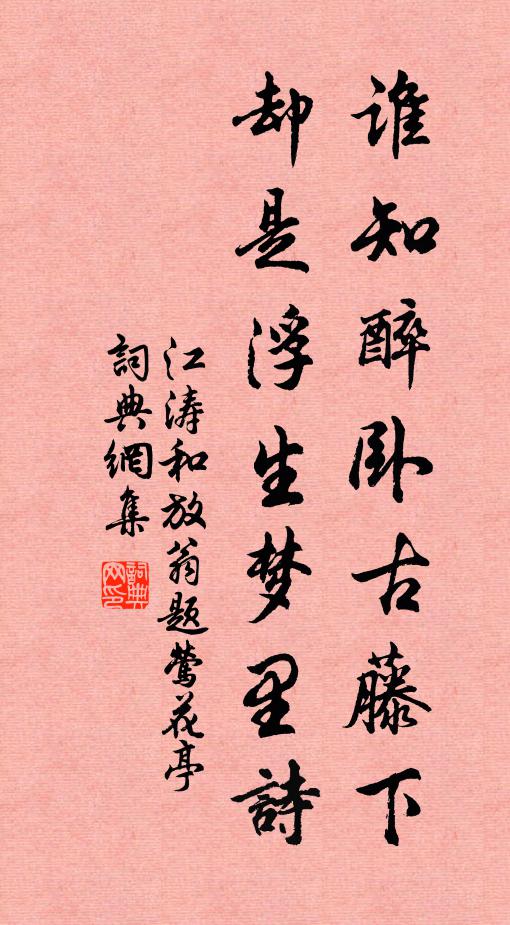 谁知醉卧古藤下
却是浮生梦里詩
江涛和放翁题鶯花亭
詞典網集
詞典网印